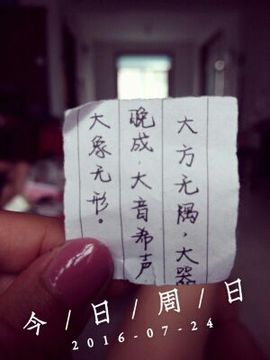 大方无隅，大器
晚成，大音希声
大象无形。
今/日/周/日
2016-07-24